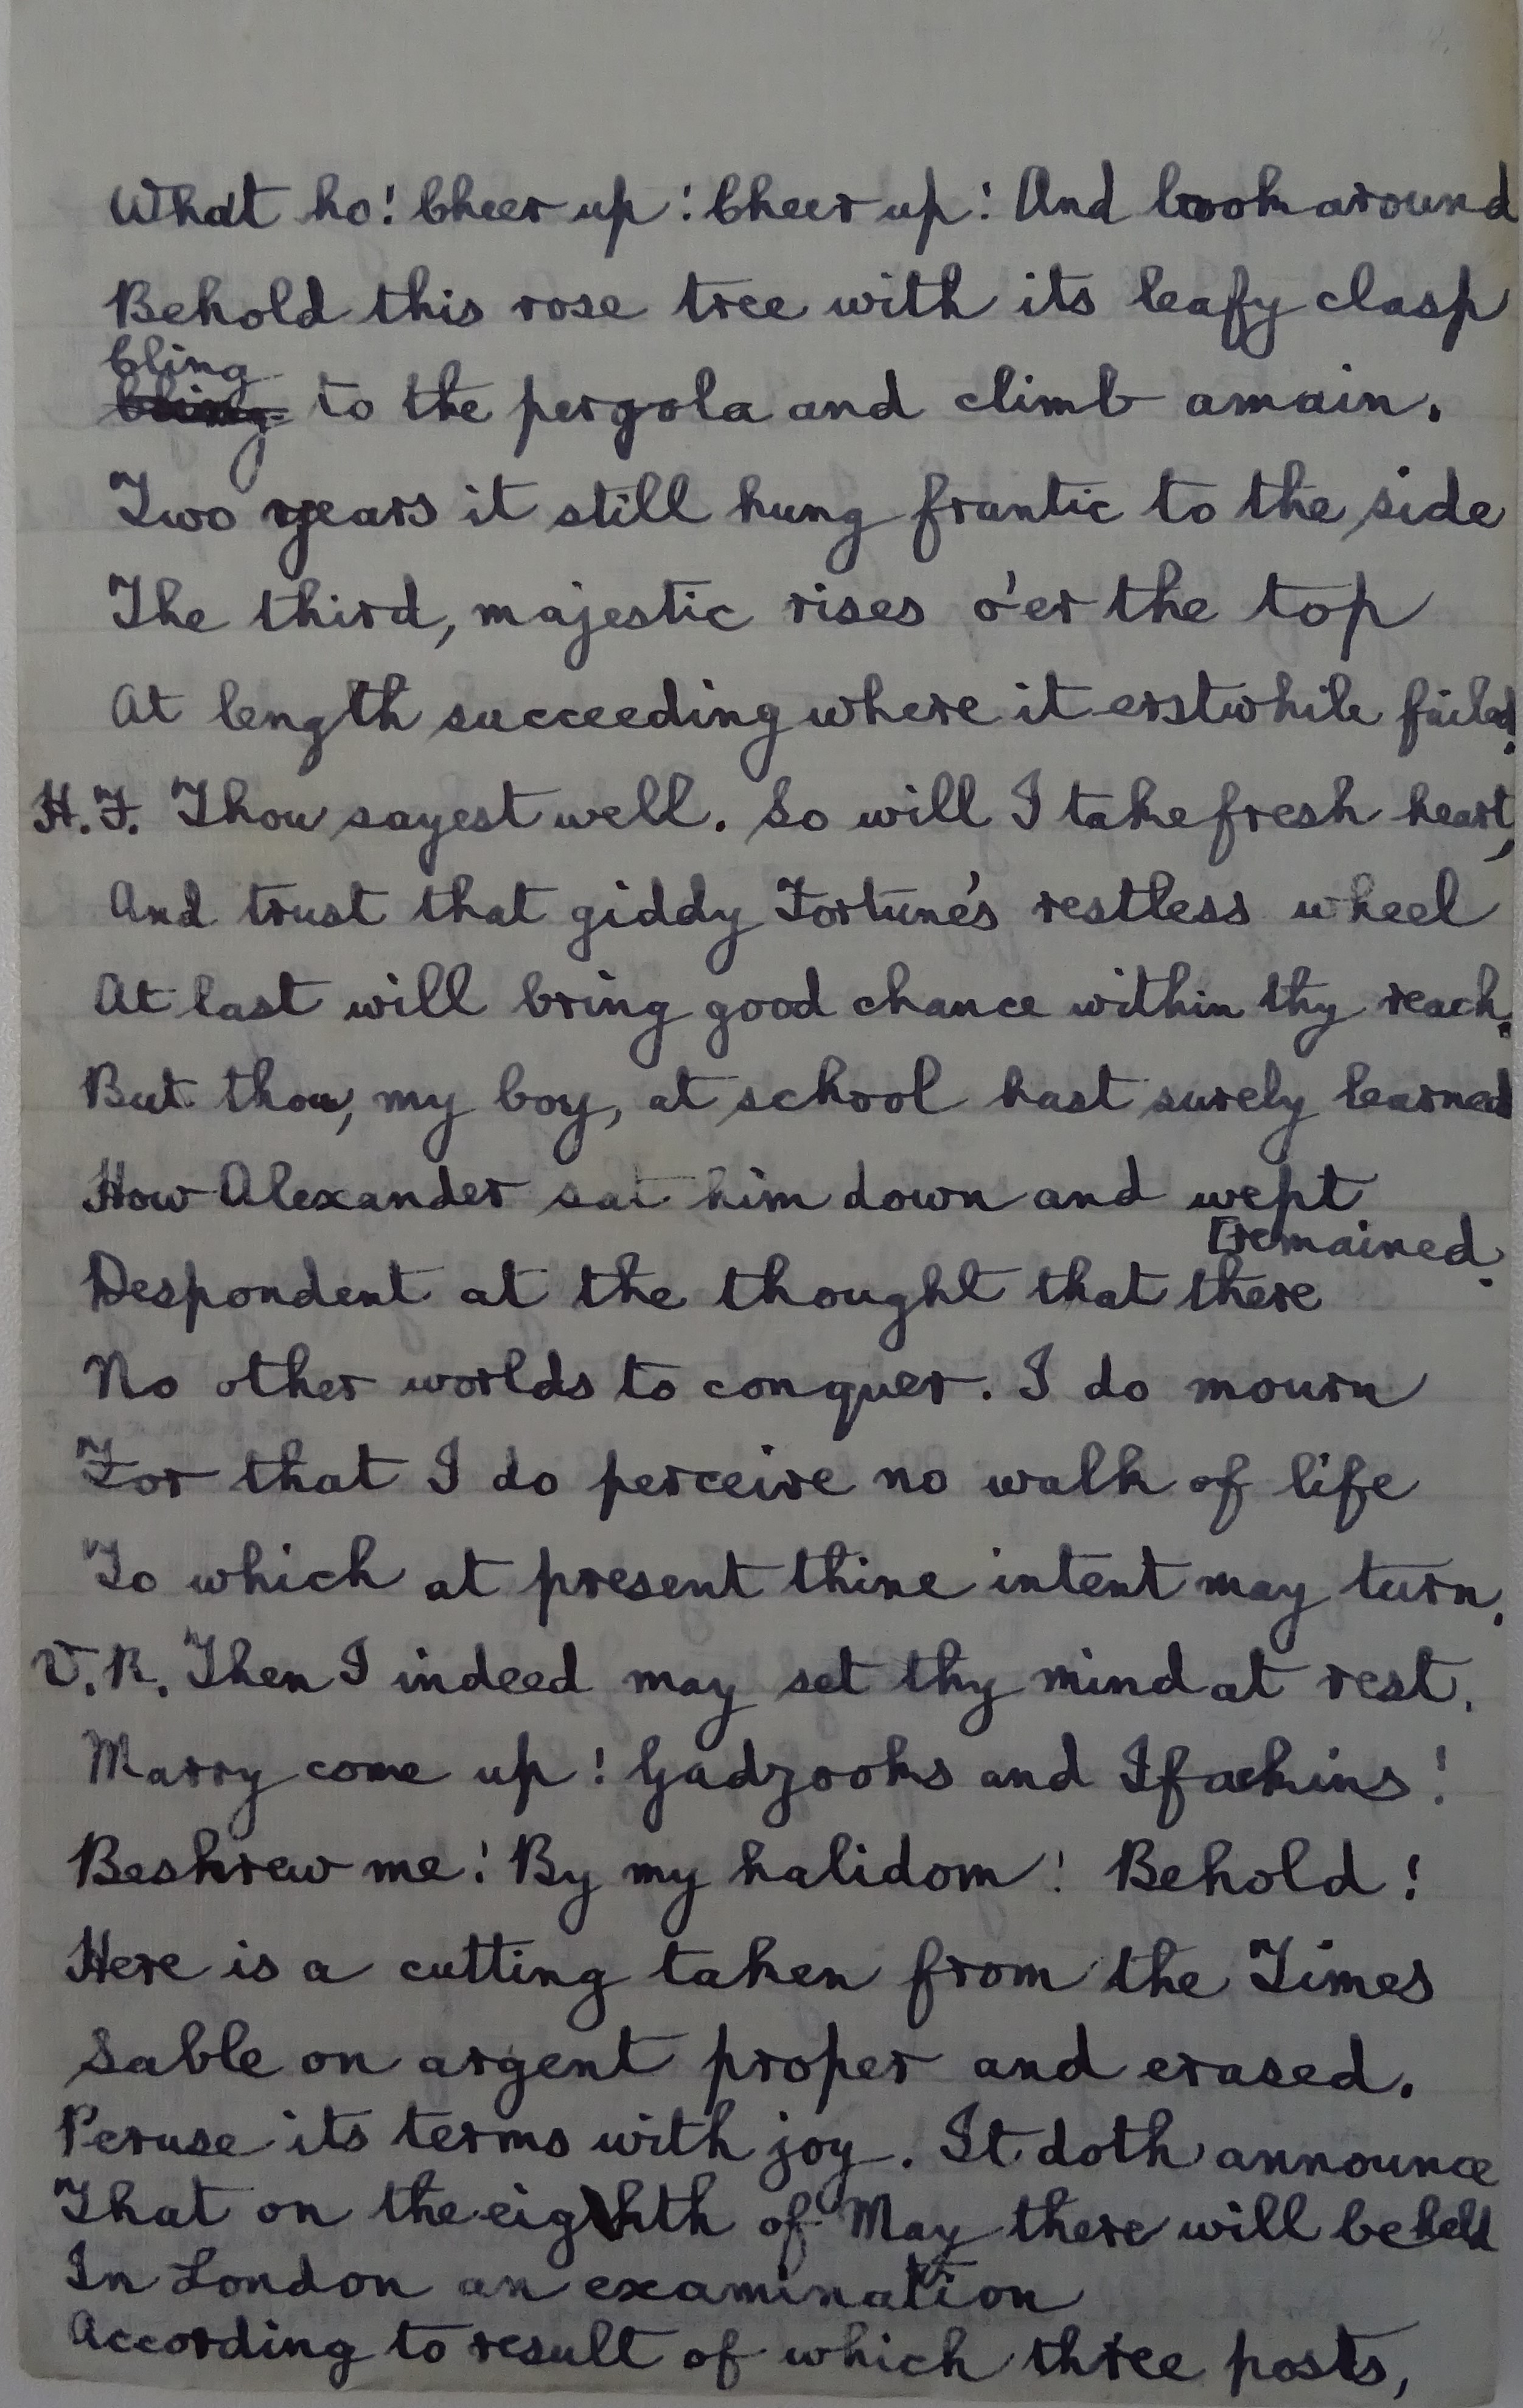 What ho! Cheer up! Cheer up! And look around
Behold this rose tree with its leafy clasp
Cling
to the pergola and climb amain.
Two years it still hung frantic to the side
The third, majestic rises o'er the top
At length succeeding where it erstwhile failed.
H.F. Thou sayest well. So will I take fresh heart,
And trust that giddy Fortune's restless wheel
At last will bring good chance within thy reach.
But thou, my boy, at school hast surely learned
How Alexander sat him down and wept
[remained.
Despondent at the thought that there
No other worlds to conquer. I do mourn
For that I do perceive no walk of life
To which at present thine intent may turn.
V.R. Then I indeed may set thy mind at rest.
Marry come up! Gadzooks and Ifackins!
Beshrew me! By my halidom! Behold!
Here is a cutting taken from the Times
Sable on argent proper and erased.
Peruse its terms with joy. It doth announce
That on the eighth of May there will be held
In London an examination
According to result of which three posts,